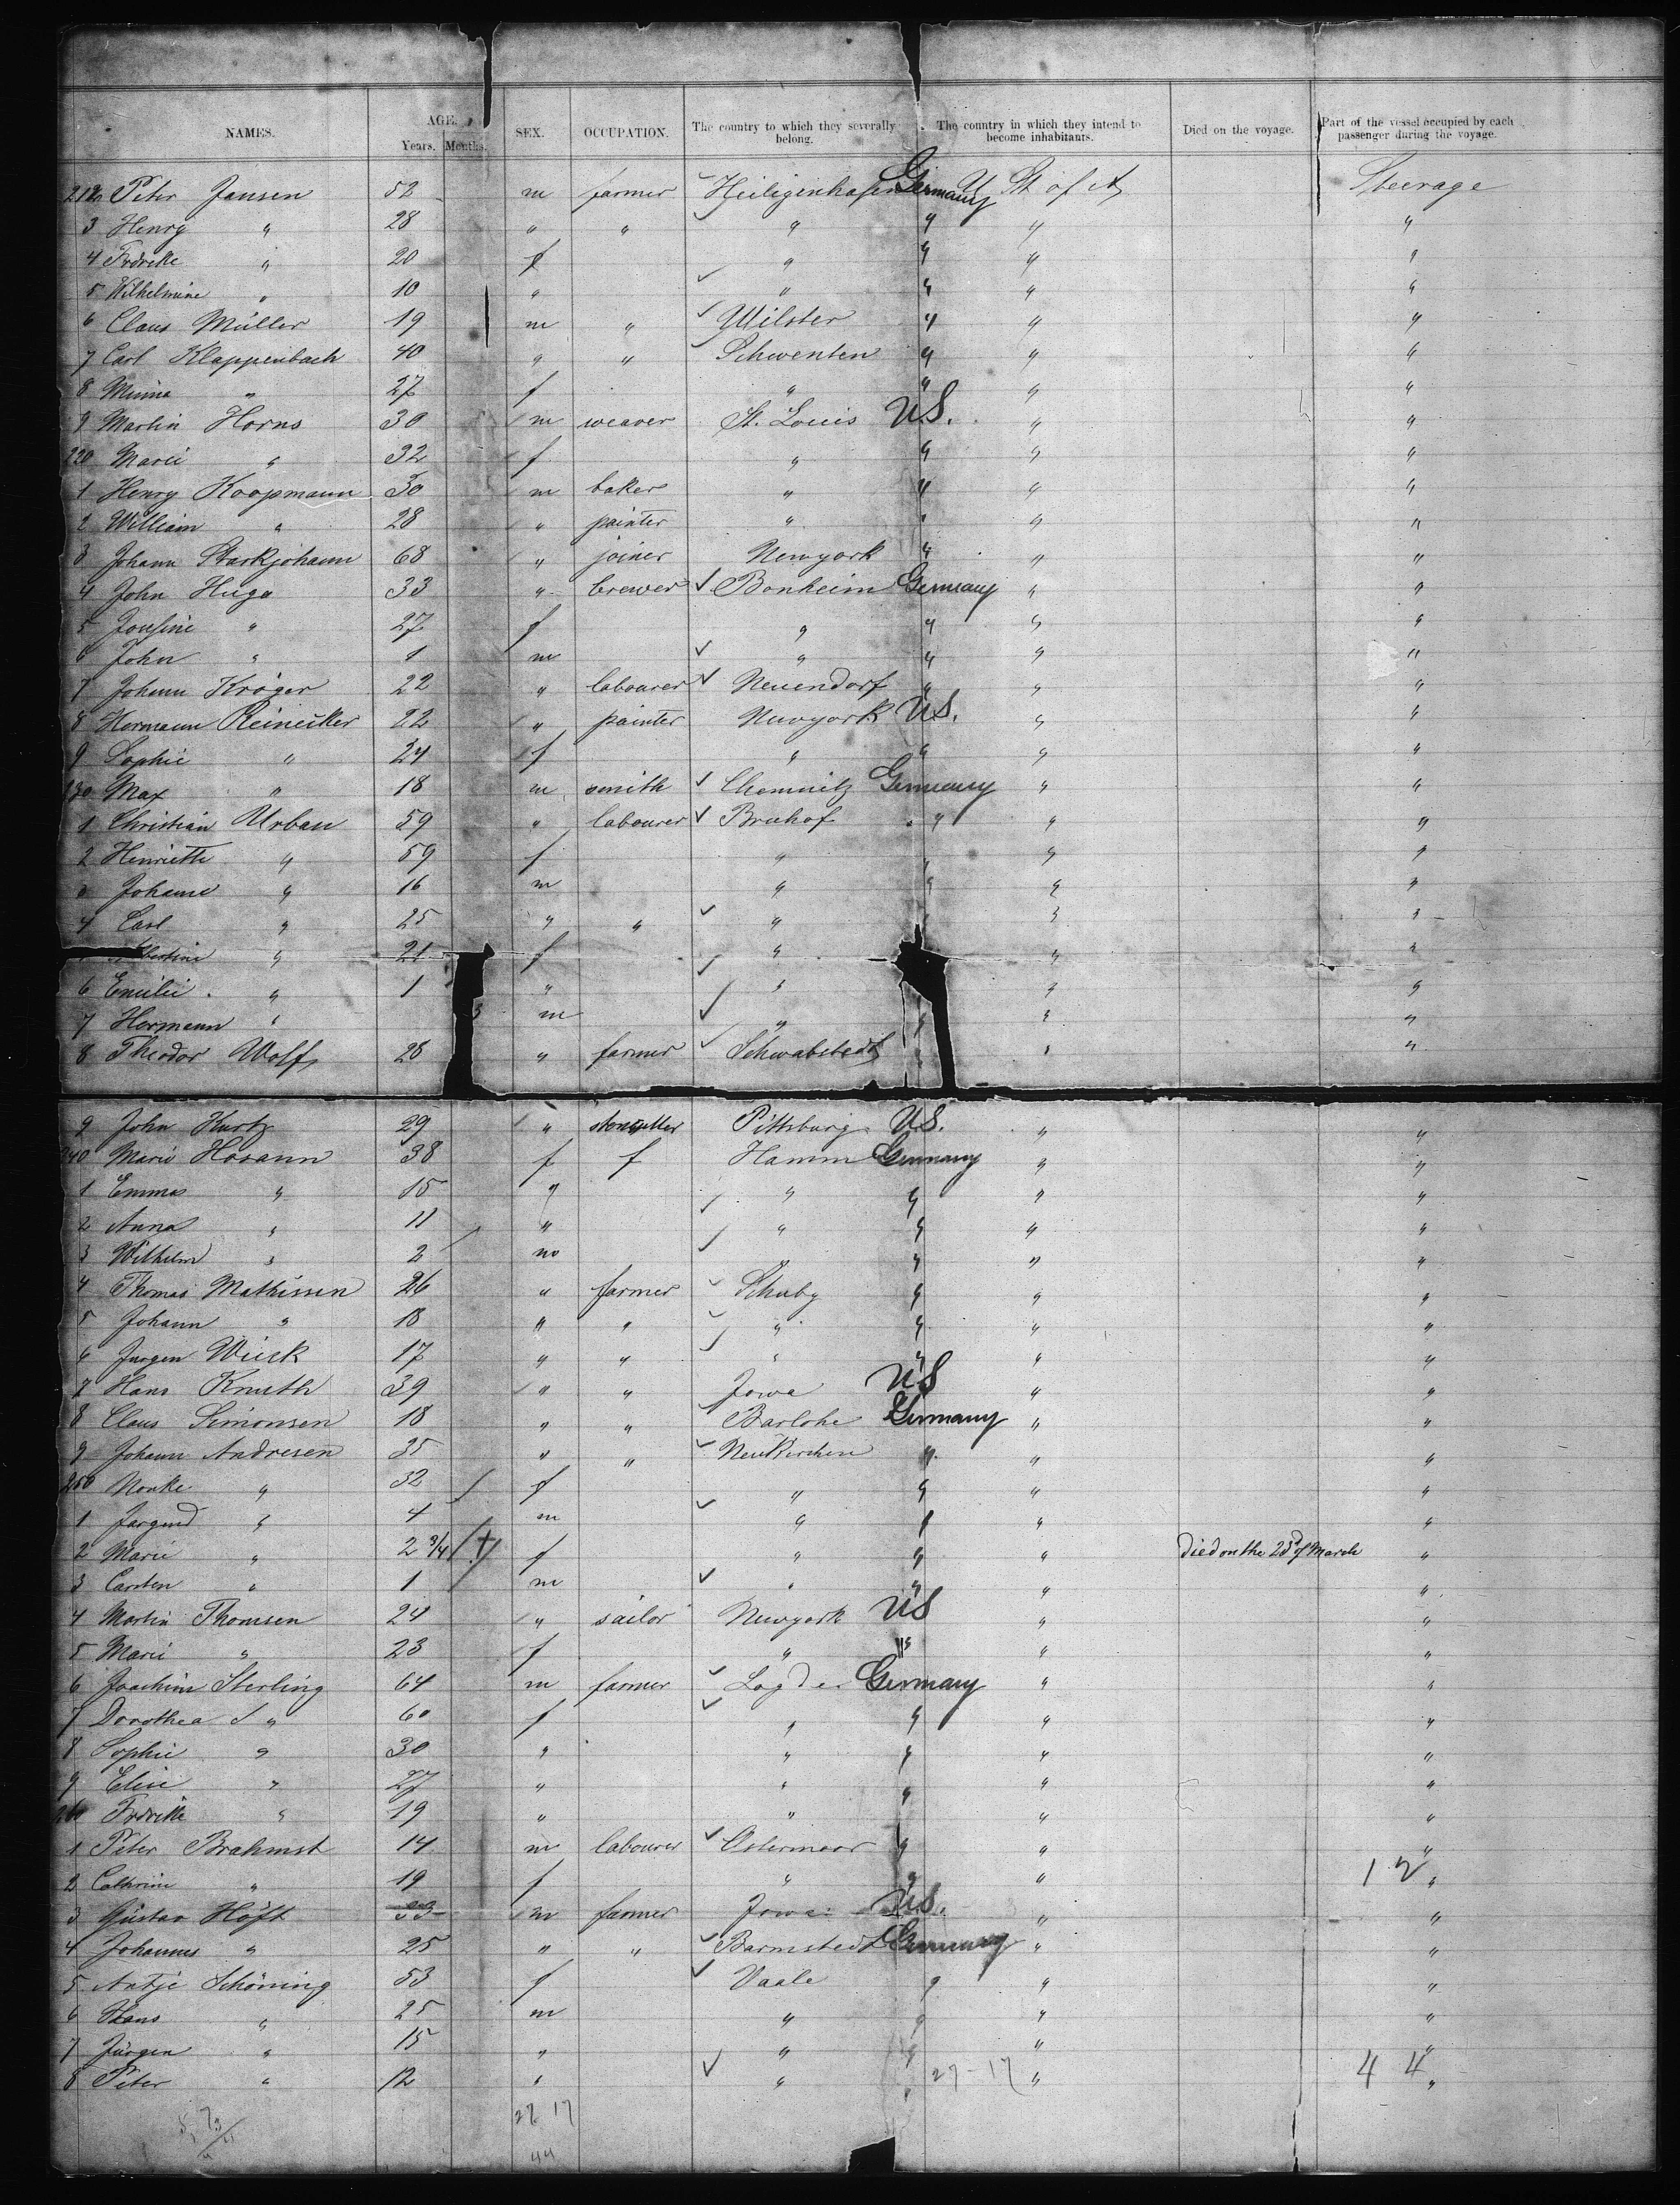 NAMES. AGE. Years. Months. SEX. OCCUPATION. The country to which they severally belong. The country in which they intend to become inhabitants. Died on the voyage. Part of the vessel occupied by each passenger during the voyage.
212 Peter Jansen 52 m farmer Heiligenhafen Germany U St of A Steerage
3 Henry " 28 " " " " " "
4 Fredrike " 20 f " " " "
5 Wilhelmine " 10 " " " " "
6 Claus Müller 19 m " Wilster " " "
7 Carl Klappenbach 40 " " Schwenten " " "
8 Minna " 27 f " " " "
9 Martin Horns 30 m weaver St. Louis U.S. " "
220 Marie " 32 f " " " "
1 Henry Koopmann 30 m baker " " " "
2 William " 28 " painter " " " "
3 Johann Starkjohann 68 " joiner Newyork " " "
4 John Hugo 33 " brewer Bonheim Germany " "
5 Josefine " 27 f " " " "
6 John " 1 m " " " "
7 Johann Kröger 22 " labourer Neuendorf " " "
8 Hermann Reinecker 22 " painter Newyork U.S. " "
9 Sophie " 24 f " " " "
130 Max " 18 m smith Chemnitz Germany " "
1 Christian Urban 59 " labourer Bruhof " " "
2 Henriette " 59 f " " " "
3 Johann " 16 m " " " "
4 Carl " 25 " " " " " "
" 21 f " " "
6 Emilie " 1 " " " "
7 Hermann " 3 m " " " "
8 Theodor Wolf 28 " farmer Schwabstedt " " "
9 John Kurtz 29 " stonecutter Pittsburg U.S. " "
240 Marie Hosann 38 f f Hamm Germany " "
1 Emma " 15 " " " " "
2 Anna " 11 " " " " "
3 Wilhelm " 2 m " " " "
4 Thomas Mathissen 26 " farmer Schuby " " "
5 Johann " 18 " " " " " "
6 Jurgen Wiesk 17 " " " " " "
7 Hans Knuth 39 " " Jowa U.S " "
8 Claus Simonsen 18 " " Barlohe Germany " "
9 Johann Andresen 35 " " Neukirchen " " "
250 " 32 f " " " "
1 " 4 m " " " "
2 Marie " 2 3/4 f " " " died on the 23d of March "
3 Carsten " 1 m " " " "
4 Martin Thomsen 24 " sailor Newyork US " "
5 Marie " 23 f " " " "
6 Joachim Sterling 64 m farmer Logde Germany " "
7 Dorothea S " 60 f " " " "
8 Sophie " 30 " " " " "
9 Elise " 27 " " " " "
260 Fredrike " 19 " " " "
1 Peter Brahmst 14 m labourer Ostermoor " " "
2 Cathrine " 19 f " " " 12 "
3 Gustav Höft 33 m farmer Jowa U.S. " "
4 Johannes " 25 " " Barmstedt Germany " "
5 Antje Schöning 53 f Vaale " " "
6 Hans " 25 m " " " "
7 Jürgen " 15 " " " " "
8 Peter " 12 " " " 27-17 " 44 "
27 17
44